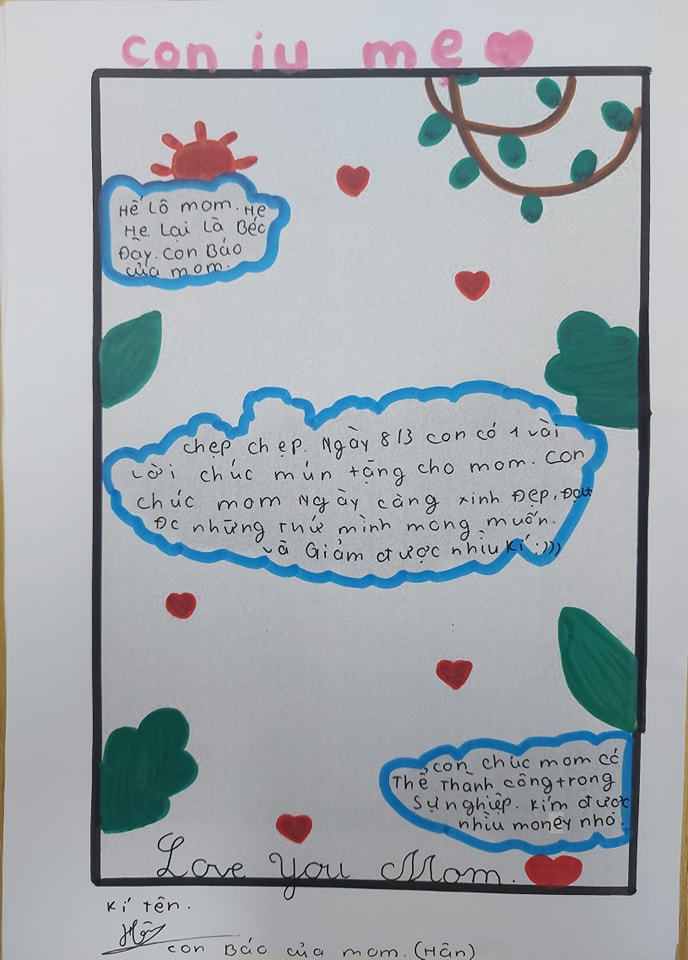 con iu mẹ
Hề Lô mom. He
He Lại Là Béo
Đây. Con Báo
của mom.
chẹp chẹp. Ngày 8/3 con có 1 vài
Lời chúc mún tặng cho mom. con
chúc mom Ngày càng xinh Đẹp, Đạt
Đc những thứ mình mong muốn.
và Giảm được nhìu kí :)))
con chúc mom có
Thể Thành công trong
Sự nghiệp. Kím được
nhìu money nhó.
Love You Mom.
Kí tên.
Hân
con Báo của mom. (Hân)